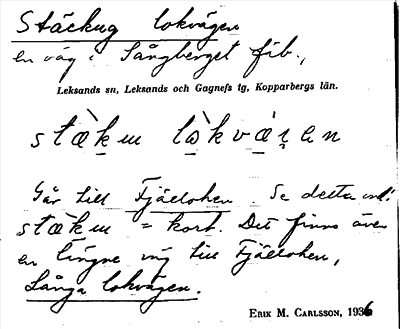 Stäckug lokvägen
en väg i Långberget fäb.,
Leksands sn, Leksands och Gagnefs tg, Kopparbergs län.
Går till Fjällohen. Se detta ord!
= kort. Det finns även
en längre väg till Fjällohen,
Långa lokvägen.
ERIK M. CARLSSON, 1936